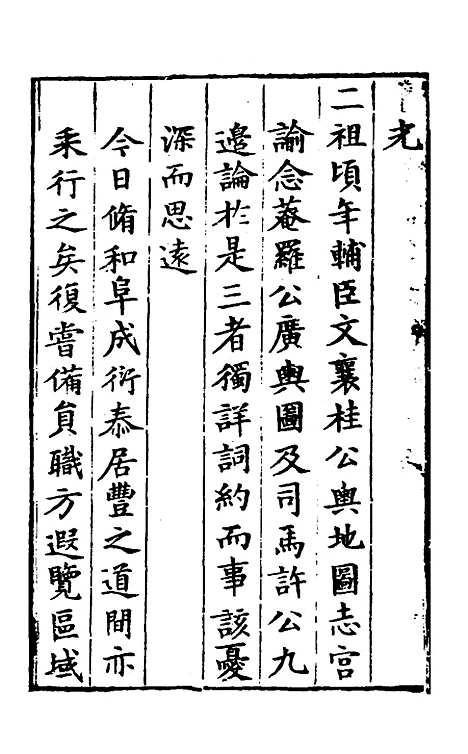 光
二祖頃年輔臣文襄桂公輿地圖志宮
諭念菴羅公廣輿圖及司馬許公九
邊論於是三者獨詳詞約而事該憂
深而思遠
今日脩和阜成衍泰居豐之道間亦
乘行之矣復嘗備員職方遐覽區域